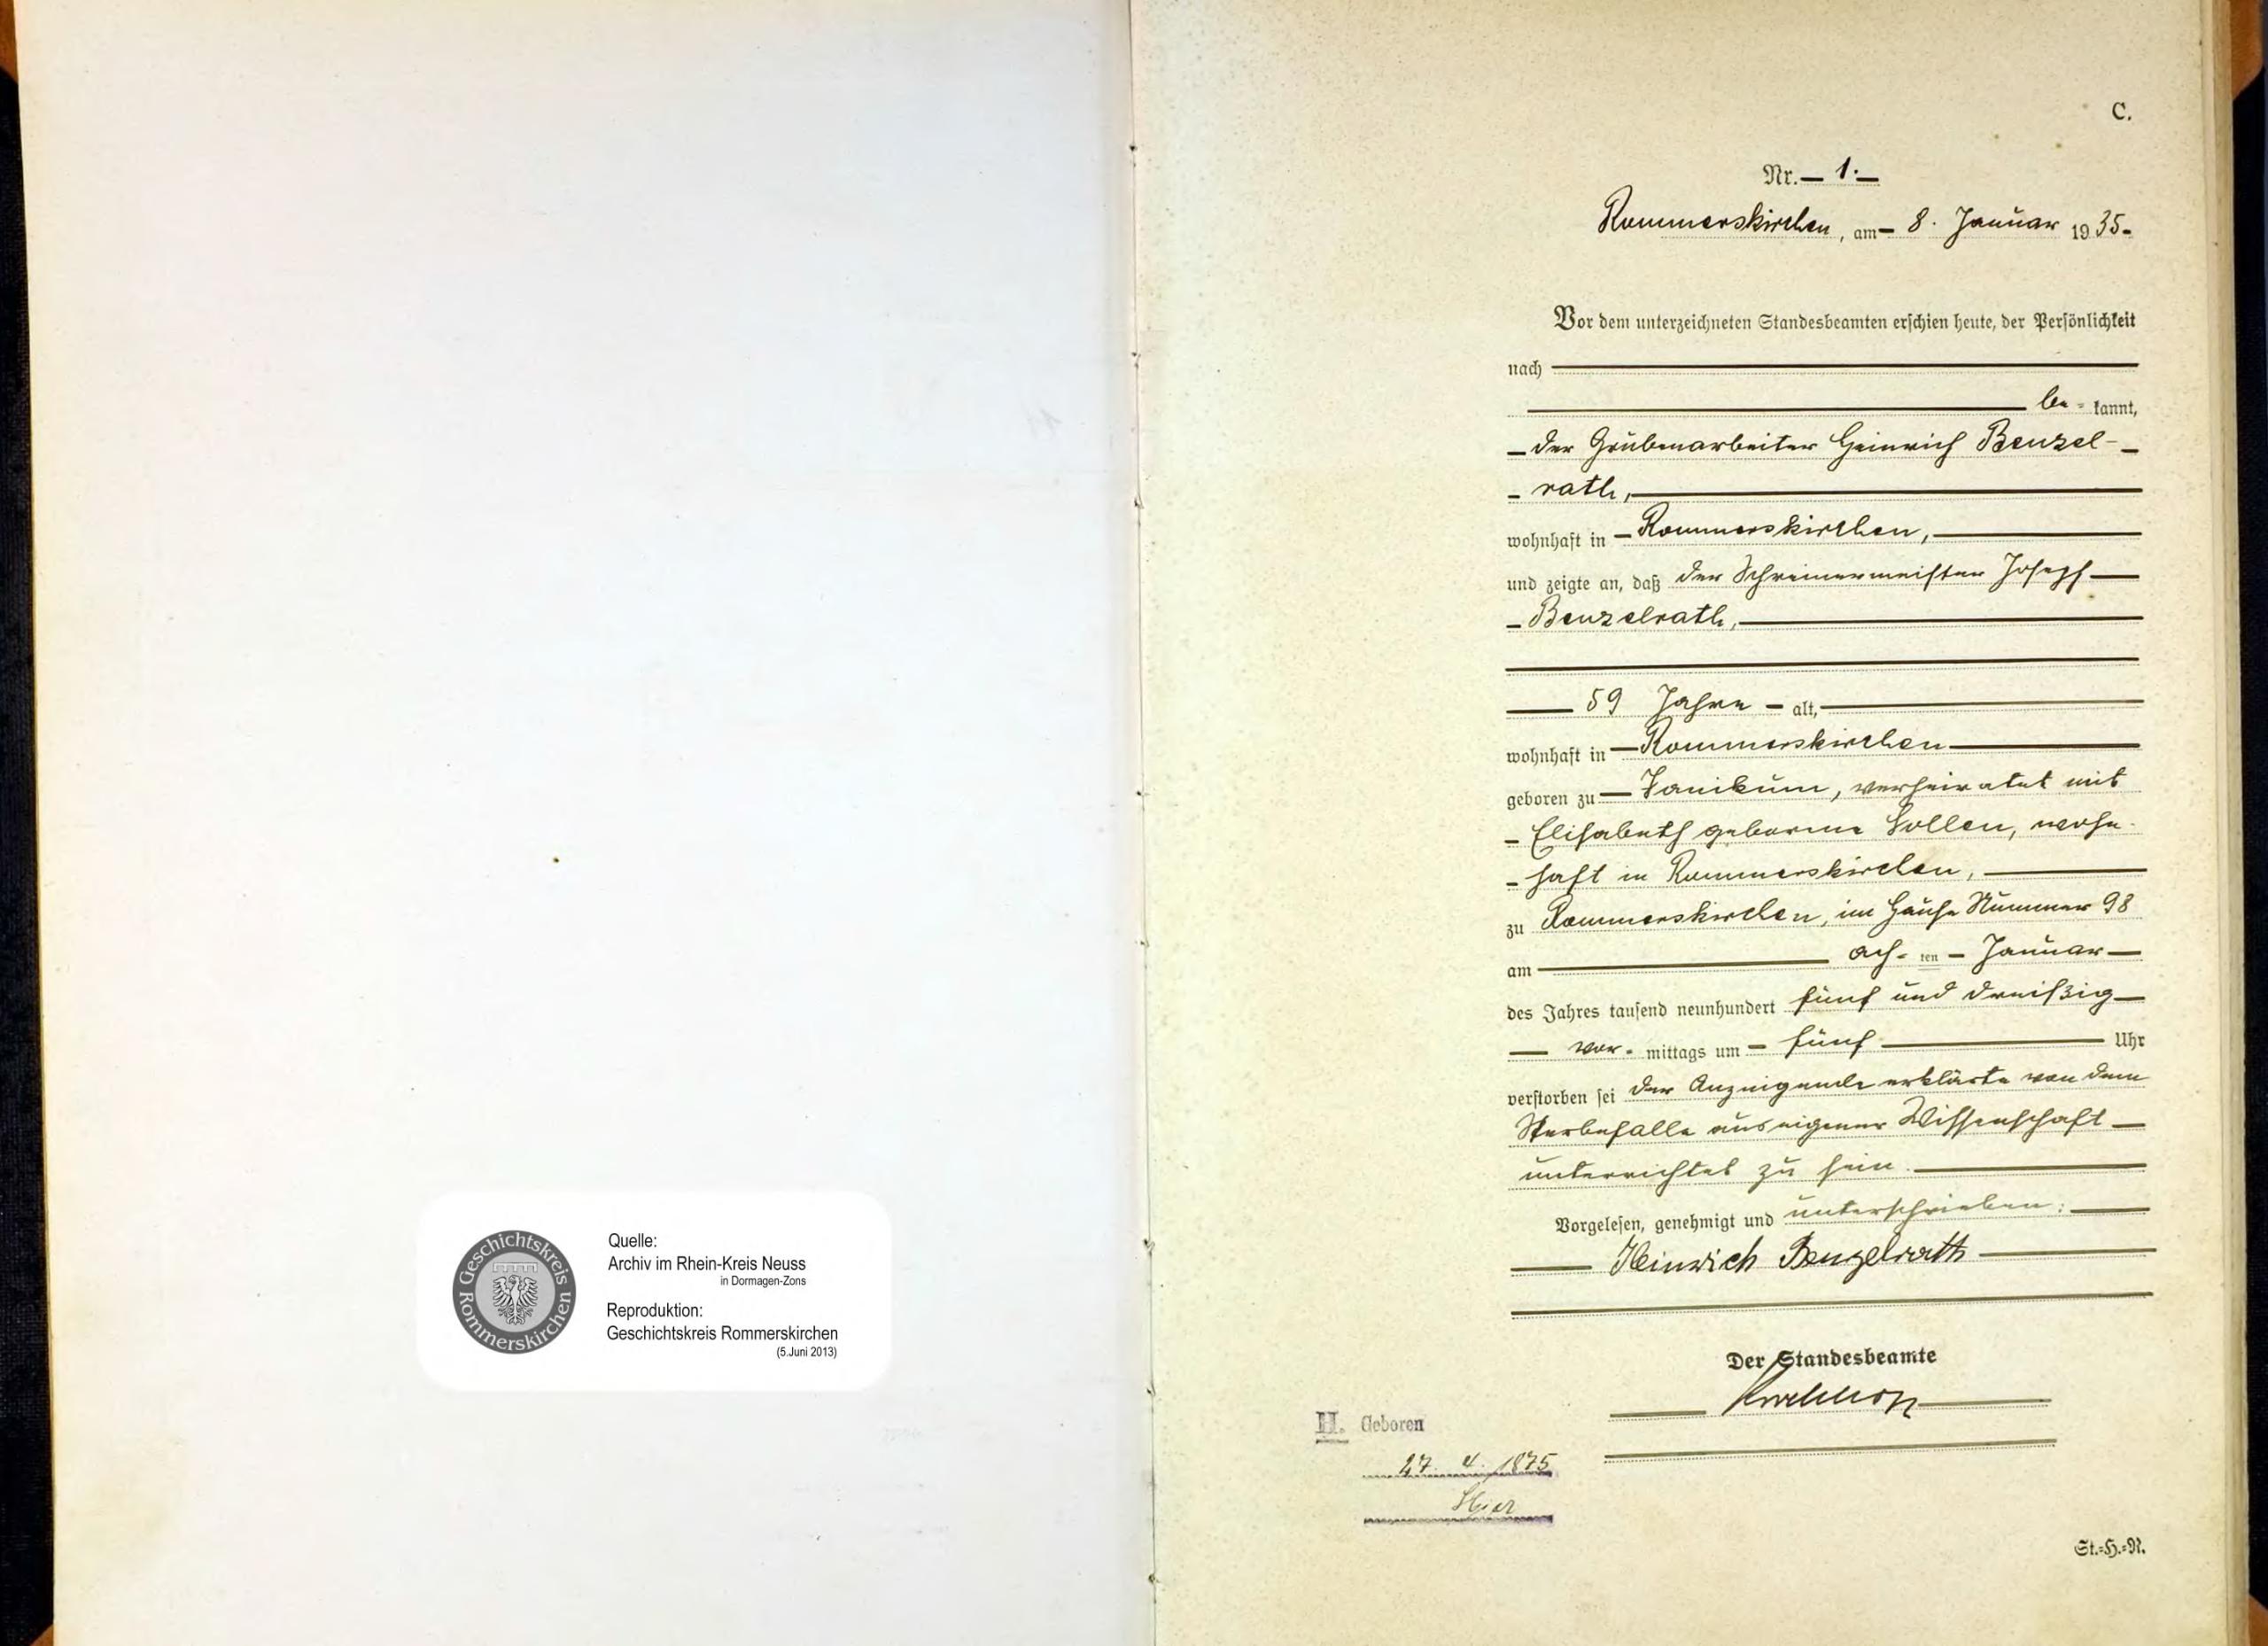 Geschichtskreis Rommerskirchen
Quelle:
Archiv im Rhein-Kreis Neuss
in Dormagen-Zons
Reproduktion:
Geschichtskreis Rommerskirchen
(5.Juni 2013)
C.
Nr. 1.
Rommerskirchen, am 8. Januar 1935
Vor dem unterzeichneten Standesbeamten erschien heute, der Persönlichkeit
nach
be- kannt,
der Grubenarbeiter Heinrich Benzel-
rath,
wohnhaft in Rommerskirchen,
und zeigte an, daß der Schreinermeister Joseph
Benzelrath,
59 Jahre alt,
wohnhaft in Rommerskirchen
geboren zu Vanikum, verheiratet mit
Elisabeth geborene Sollen, wohn-
haft in Rommerskirchen,
zu Rommerskirchen, im Hause Nummer 98
am ach- ten Januar
des Jahres tausend neunhundert fünf und dreißig
vor- mittags um fünf Uhr
verstorben sei der Anzeigende erklärte von dem
Sterbefalle aus eigener Wissenschaft
unterrichtet zu sein.
Vorgelesen, genehmigt und unterschrieben:
Heinrich Benzelrath
Der Standesbeamte
H. Geboren
27. 4. 1875
Hier
St.=H.=N.